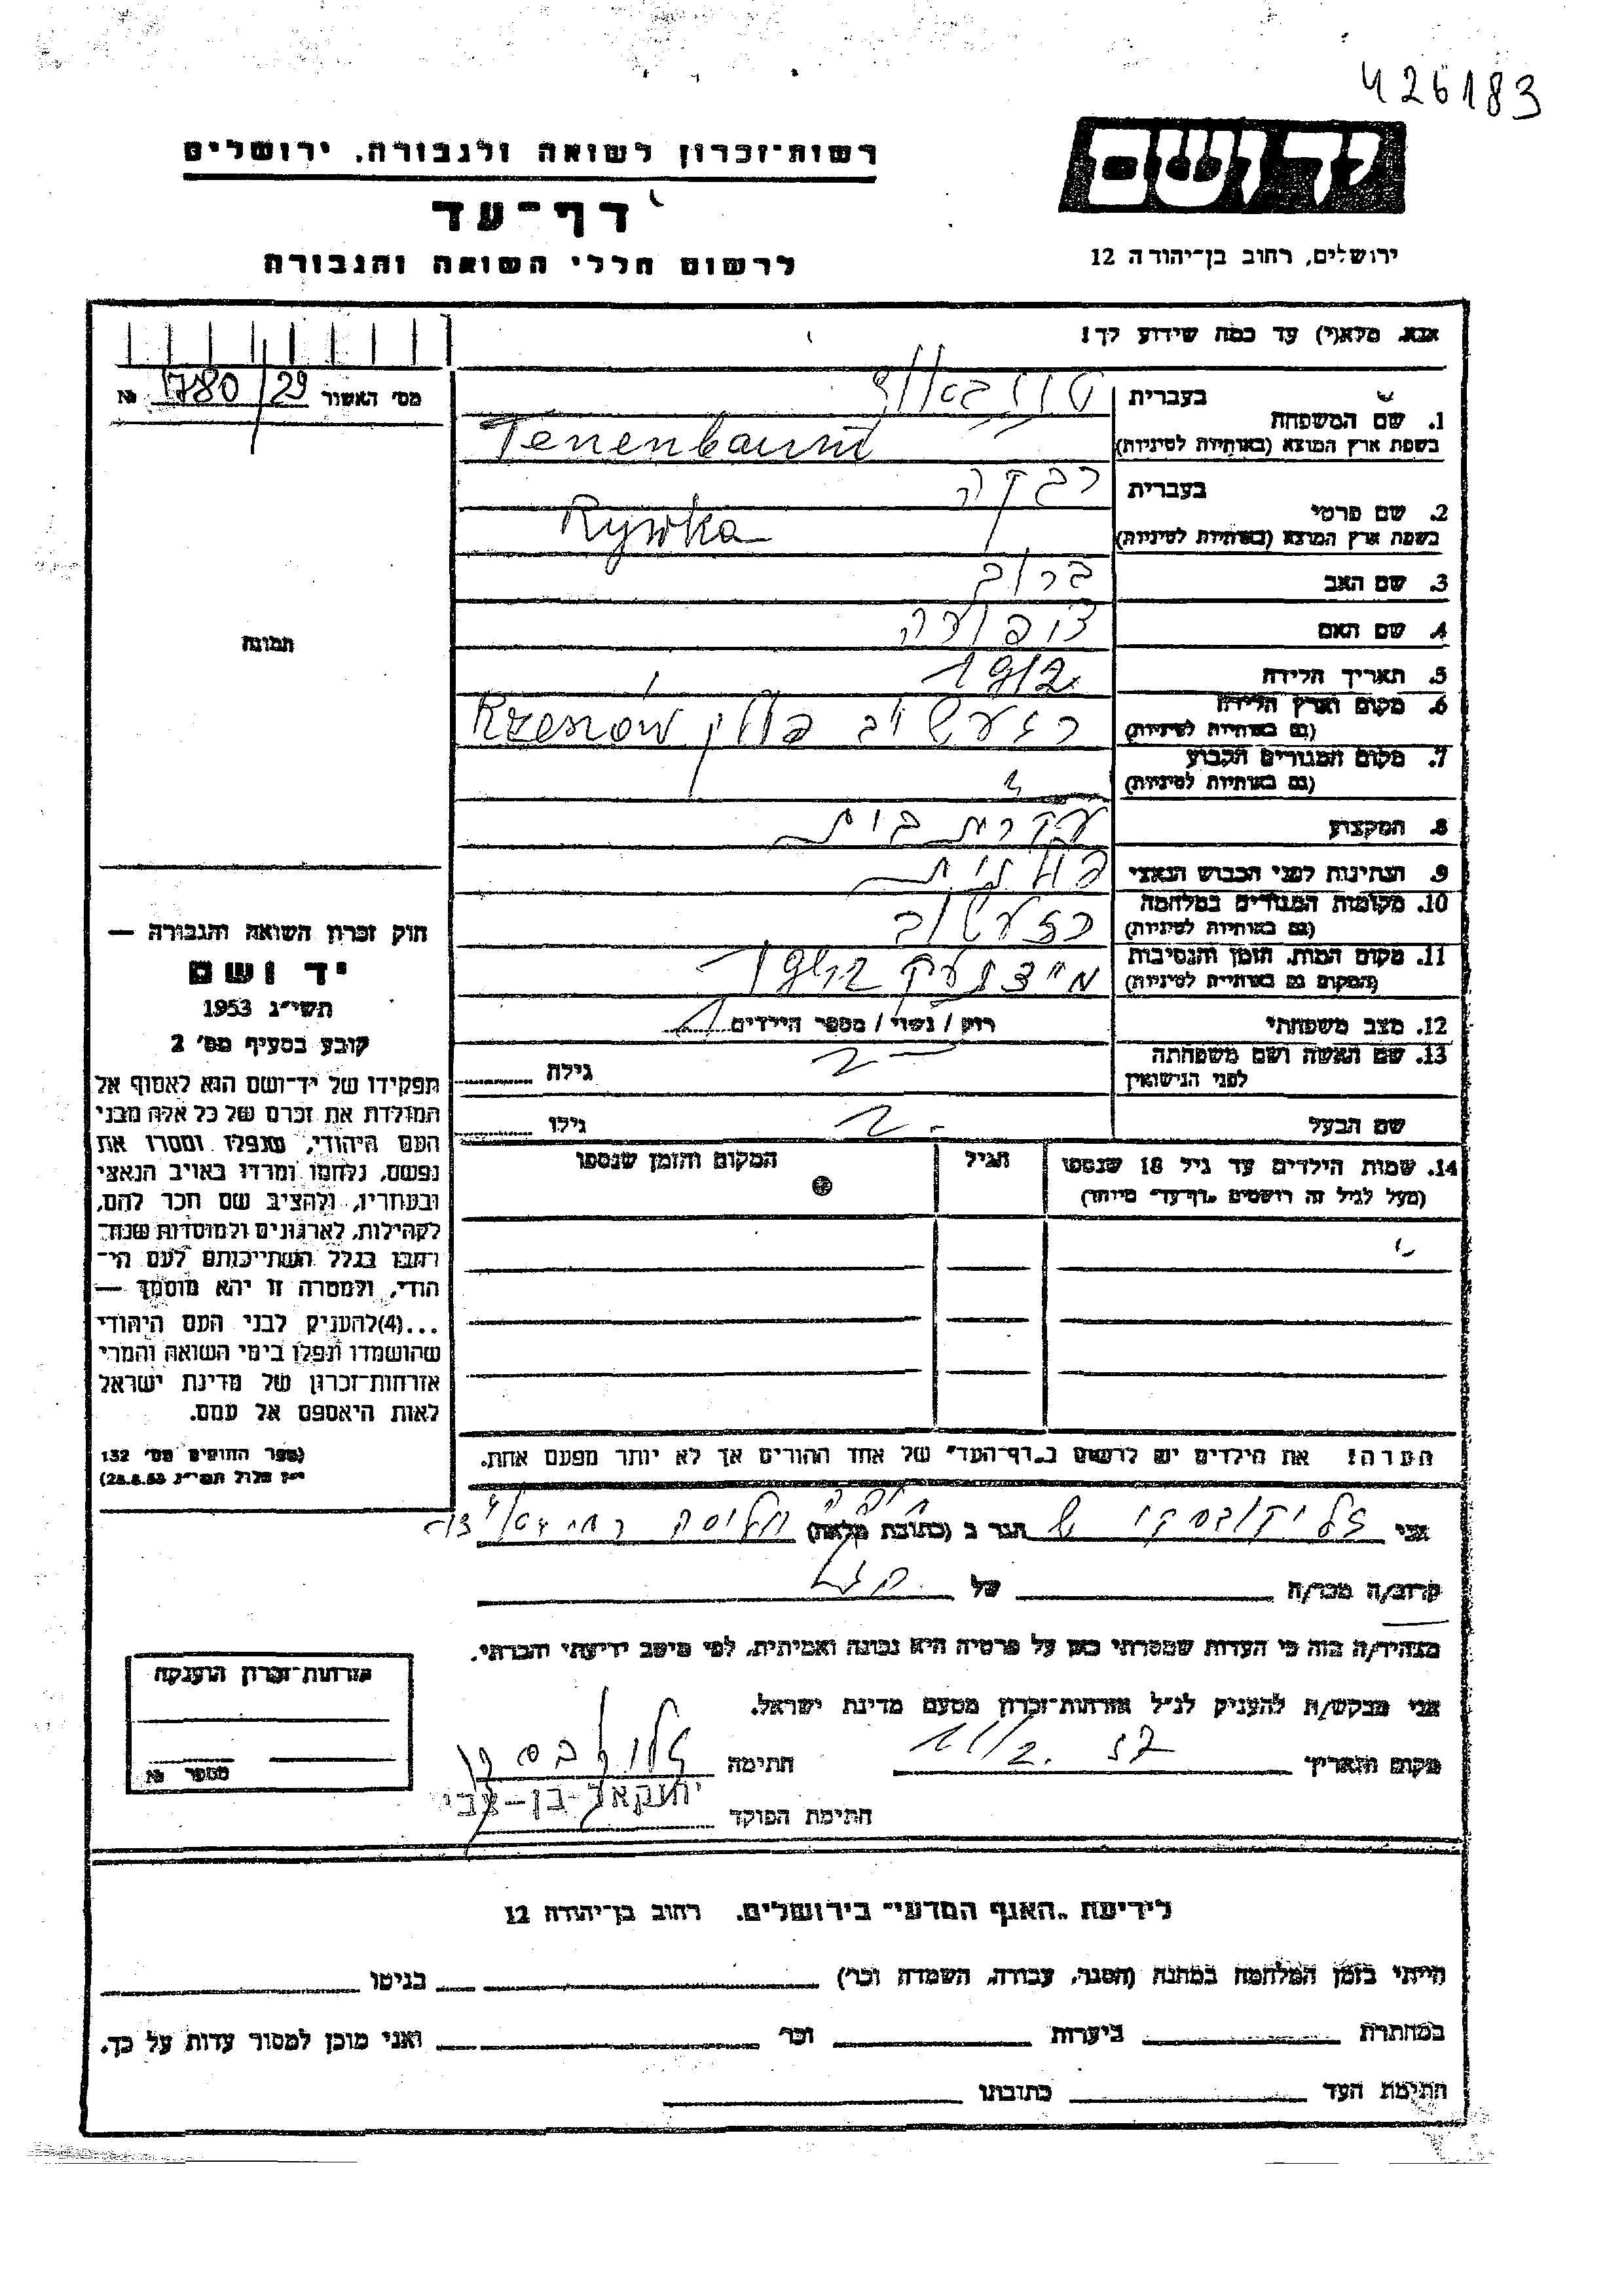 426183
יד ושם
רשות־זכרון לשואה ולגבורה, ירושלים
דף־עד
ירושלים, רחוב בן־יהודה 12
לרשום חללי השואה והגבורה
אנא, מלא(י) עד כמה שידוע לך!
מס' האשור 1780/29 №
1. שם המשפחה
בעברית טננבאום
בשפת ארץ המוצא (באותיות לטיניות) Tenenbaum
2. שם פרטי
בעברית רבקה
בשפת ארץ המוצא (באותיות לטיניות) Rywka
3. שם האב ברוך
4. שם האם צפורה
5. תאריך הלידה 1912
6. מקום וארץ הלידה (גם באותיות לטיניות) פולין
7. מקום המגורים הקבוע (גם באותיות לטיניות)
8. המקצוע עקרת בית
9. הנתינות לפני הכבוש הנאצי פולנית
10. מקומות המגורים במלחמה (גם באותיות לטיניות)
11. מקום המות, הזמן והנסיבות (המקום גם באותיות לטיניות)
12. מצב משפחתי רווק / נשוי / מספר הילדים
13. שם האשה ושם משפחתה לפני הנישואין גילה
שם הבעל גילו
14. שמות הילדים עד גיל 18 שנספו (מעל לגיל זה רושמים "דף־עד" מיוחד) הגיל המקום והזמן שנספו
הערה: את הילדים יש לרשום ב„דף־העד" של אחד ההורים אך לא יותר מפעם אחת.
תמונה
חוק זכרון השואה והגבורה —
יד ושם
תשי"ג 1953
קובע בסעיף מס' 2
תפקידו של יד־ושם הוא לאסוף אל
המולדת את זכרם של כל אלה מבני
העם היהודי, שנפלו ומסרו את
נפשם, נלחמו ומרדו באויב הנאצי
ובעוזריו, ולהציב שם וזכר להם,
לקהילות, לארגונים ולמוסדות שנח־
רבו בגלל השתייכותם לעם הי־
הודי, ולמטרה זו יהא מוסמך —
...(4)להעניק לבני העם היהודי
שהושמדו ונפלו בימי השואה והמרי
אזרחות־זכרון של מדינת ישראל
לאות היאספם אל עמם.
(ספר החוקים מס' 132
י"ז אלול תשי"ג 28.8.53)
אני הגר ב (כתובת מלאה)
קרוב/ה מכר/ה של
מצהיר/ה בזה כי העדות שמסרתי כאן על פרטיה היא נכונה ואמיתית, לפי מיטב ידיעתי והכרתי.
אני מבקש/ת להעניק לנ"ל אזרחות־זכרון מטעם מדינת ישראל.
מקום ותאריך 11/2. 57 חתימה
חתימת הפוקד יחזקאל בן-צבי
אזרחות־זכרון הוענקה
מספר №
לידיעת „האגף המדעי" בירושלים, רחוב בן־יהודה 12
הייתי בזמן המלחמה במחנה (הסגר, עבודה, השמדה וכו') בגיטו
במחתרת ביערות וכו' ואני מוכן למסור עדות על כך.
חתימת העד כתובתו